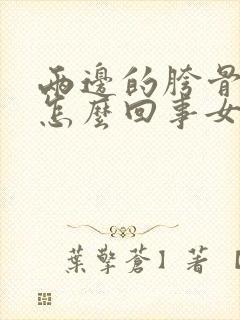 兩邊的胯骨
怎麼回事女
葉擎蒼】著【